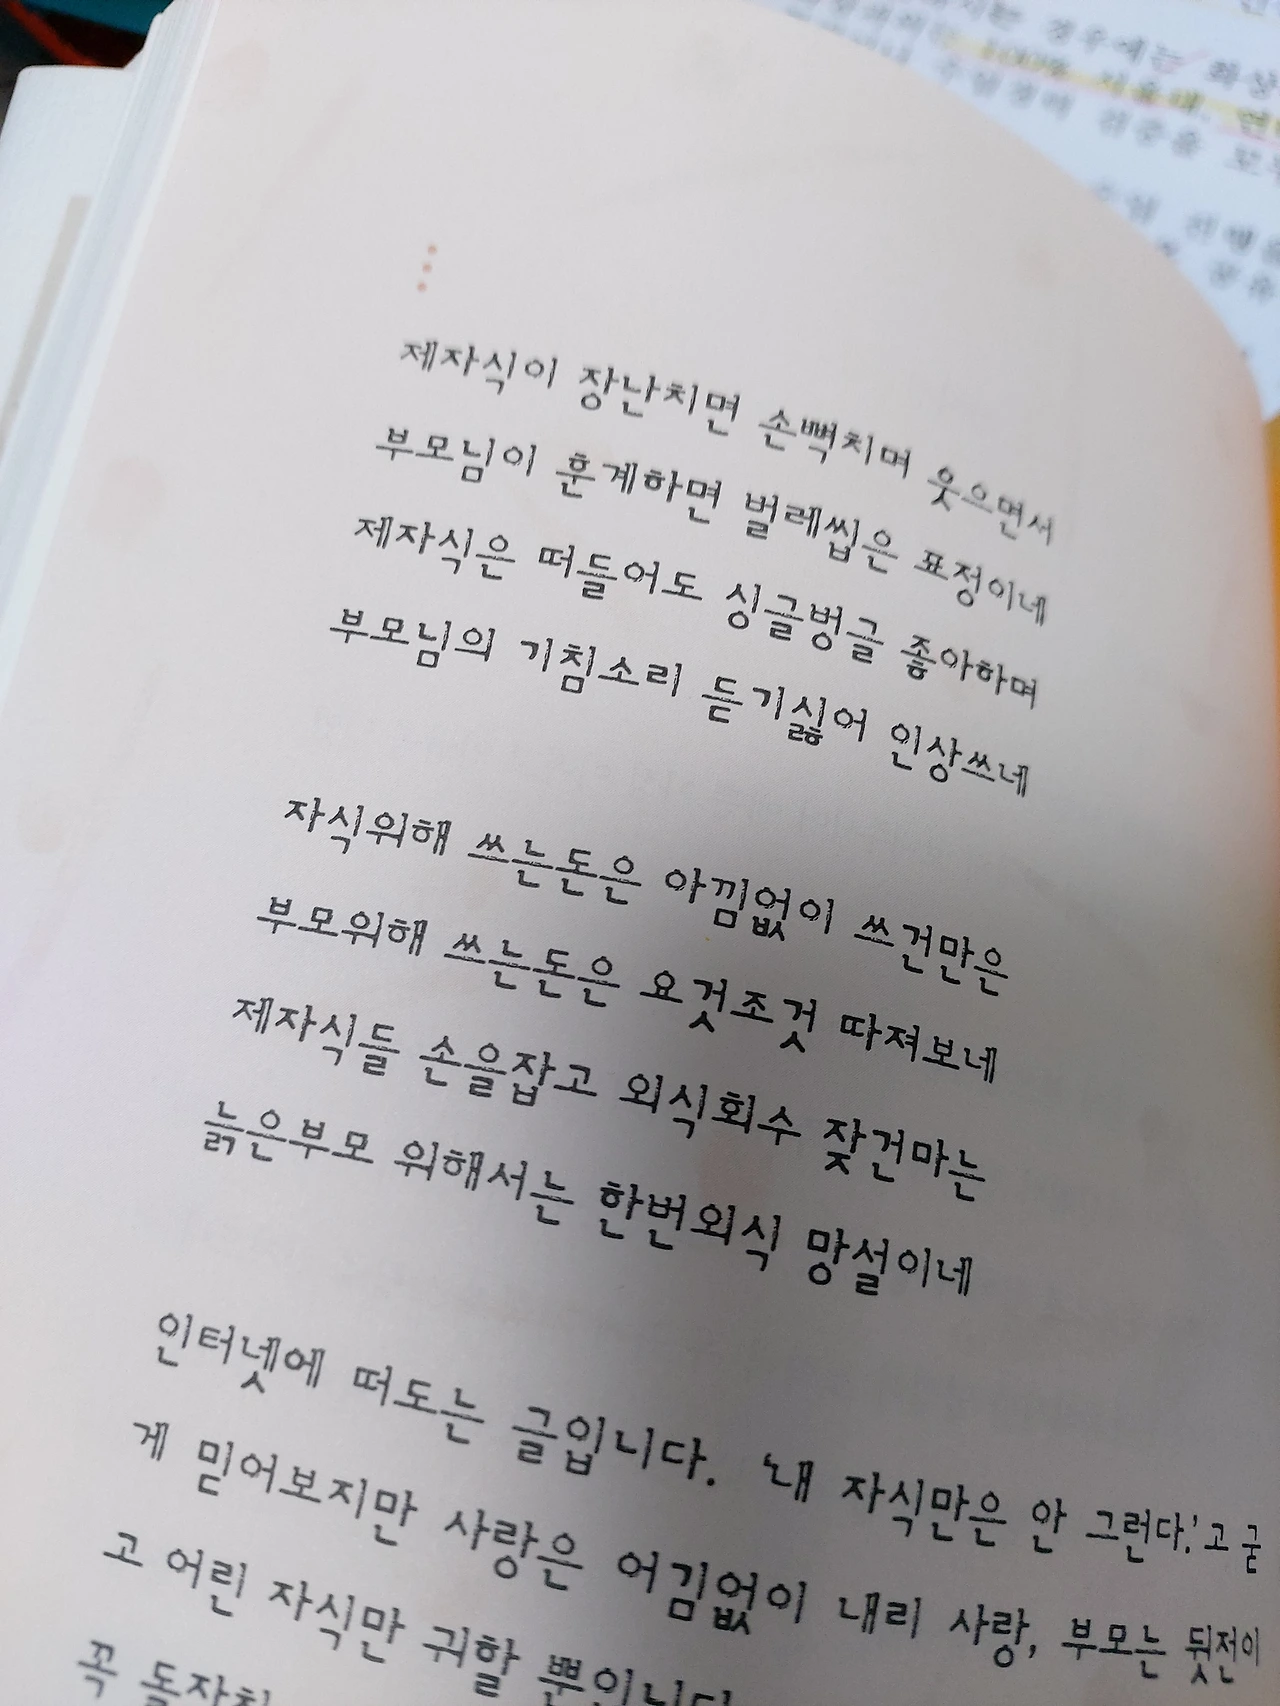 제자식이 장난치면 손뼉치며 웃으면서
부모님이 훈계하면 벌레씹은 표정이네
제자식은 떠들어도 싱글벙글 좋아하며
부모님의 기침소리 듣기싫어 인상쓰네
자식위해 쓰는돈은 아낌없이 쓰건만은
부모위해 쓰는돈은 요것조것 따져보네
제자식들 손을잡고 외식회수 잦건마는
늙은부모 위해서는 한번외식 망설이네
인터넷에 떠도는 글입니다. '내 자식만은 안 그런다.'고 굳
게 믿어보지만 사랑은 어김없이 내리 사랑, 부모는 뒷전이
고 어린 자식만 귀할 뿐입니다
꼭
경우에는